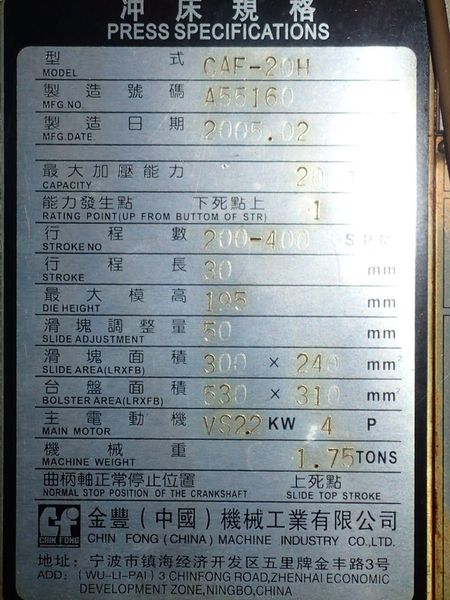 冲床規格
PRESS SPECIFICATIONS
型式 CAF-20H
MODEL
製造號碼 A55160
MFG.NO.
製造日期 2005.02
MFG.DATE.
最大加壓能力 20 T
CAPACITY
能力發生點 下死點上 1
RATING POINT(UP FROM BUTTOM OF STR)
行程數 200-400 S.P.M
STROKE NO
行程長 30 mm
STROKE
最大模高 195 mm
DIE HEIGHT
滑塊調整量 50 mm
SLIDE ADJUSTMENT
滑塊面積 300 × 240 mm²
SLIDE AREA(LRXFB)
台盤面積 530 × 310 mm²
BOLSTER AREA(LRXFB)
主電動機 VS2.2 KW 4 P
MAIN MOTOR
機械重 1.75 TONS
MACHINE WEIGHT
曲柄軸正常停止位置 上死點
NORMAL STOP POSITION OF THE CRANKSHAFT SLIDE TOP STROKE
CHIN FONG 金豐(中國)機械工業有限公司
CHIN FONG (CHINA) MACHINE INDUSTRY CO.,LTD.
地址: 宁波市镇海经济开发区五里牌金丰路3号
ADD: (WU-LI-PAI) 3 CHINFONG ROAD,ZHENHAI ECONOMIC
DEVELOPMENT ZONE,NINGBO,CHINA